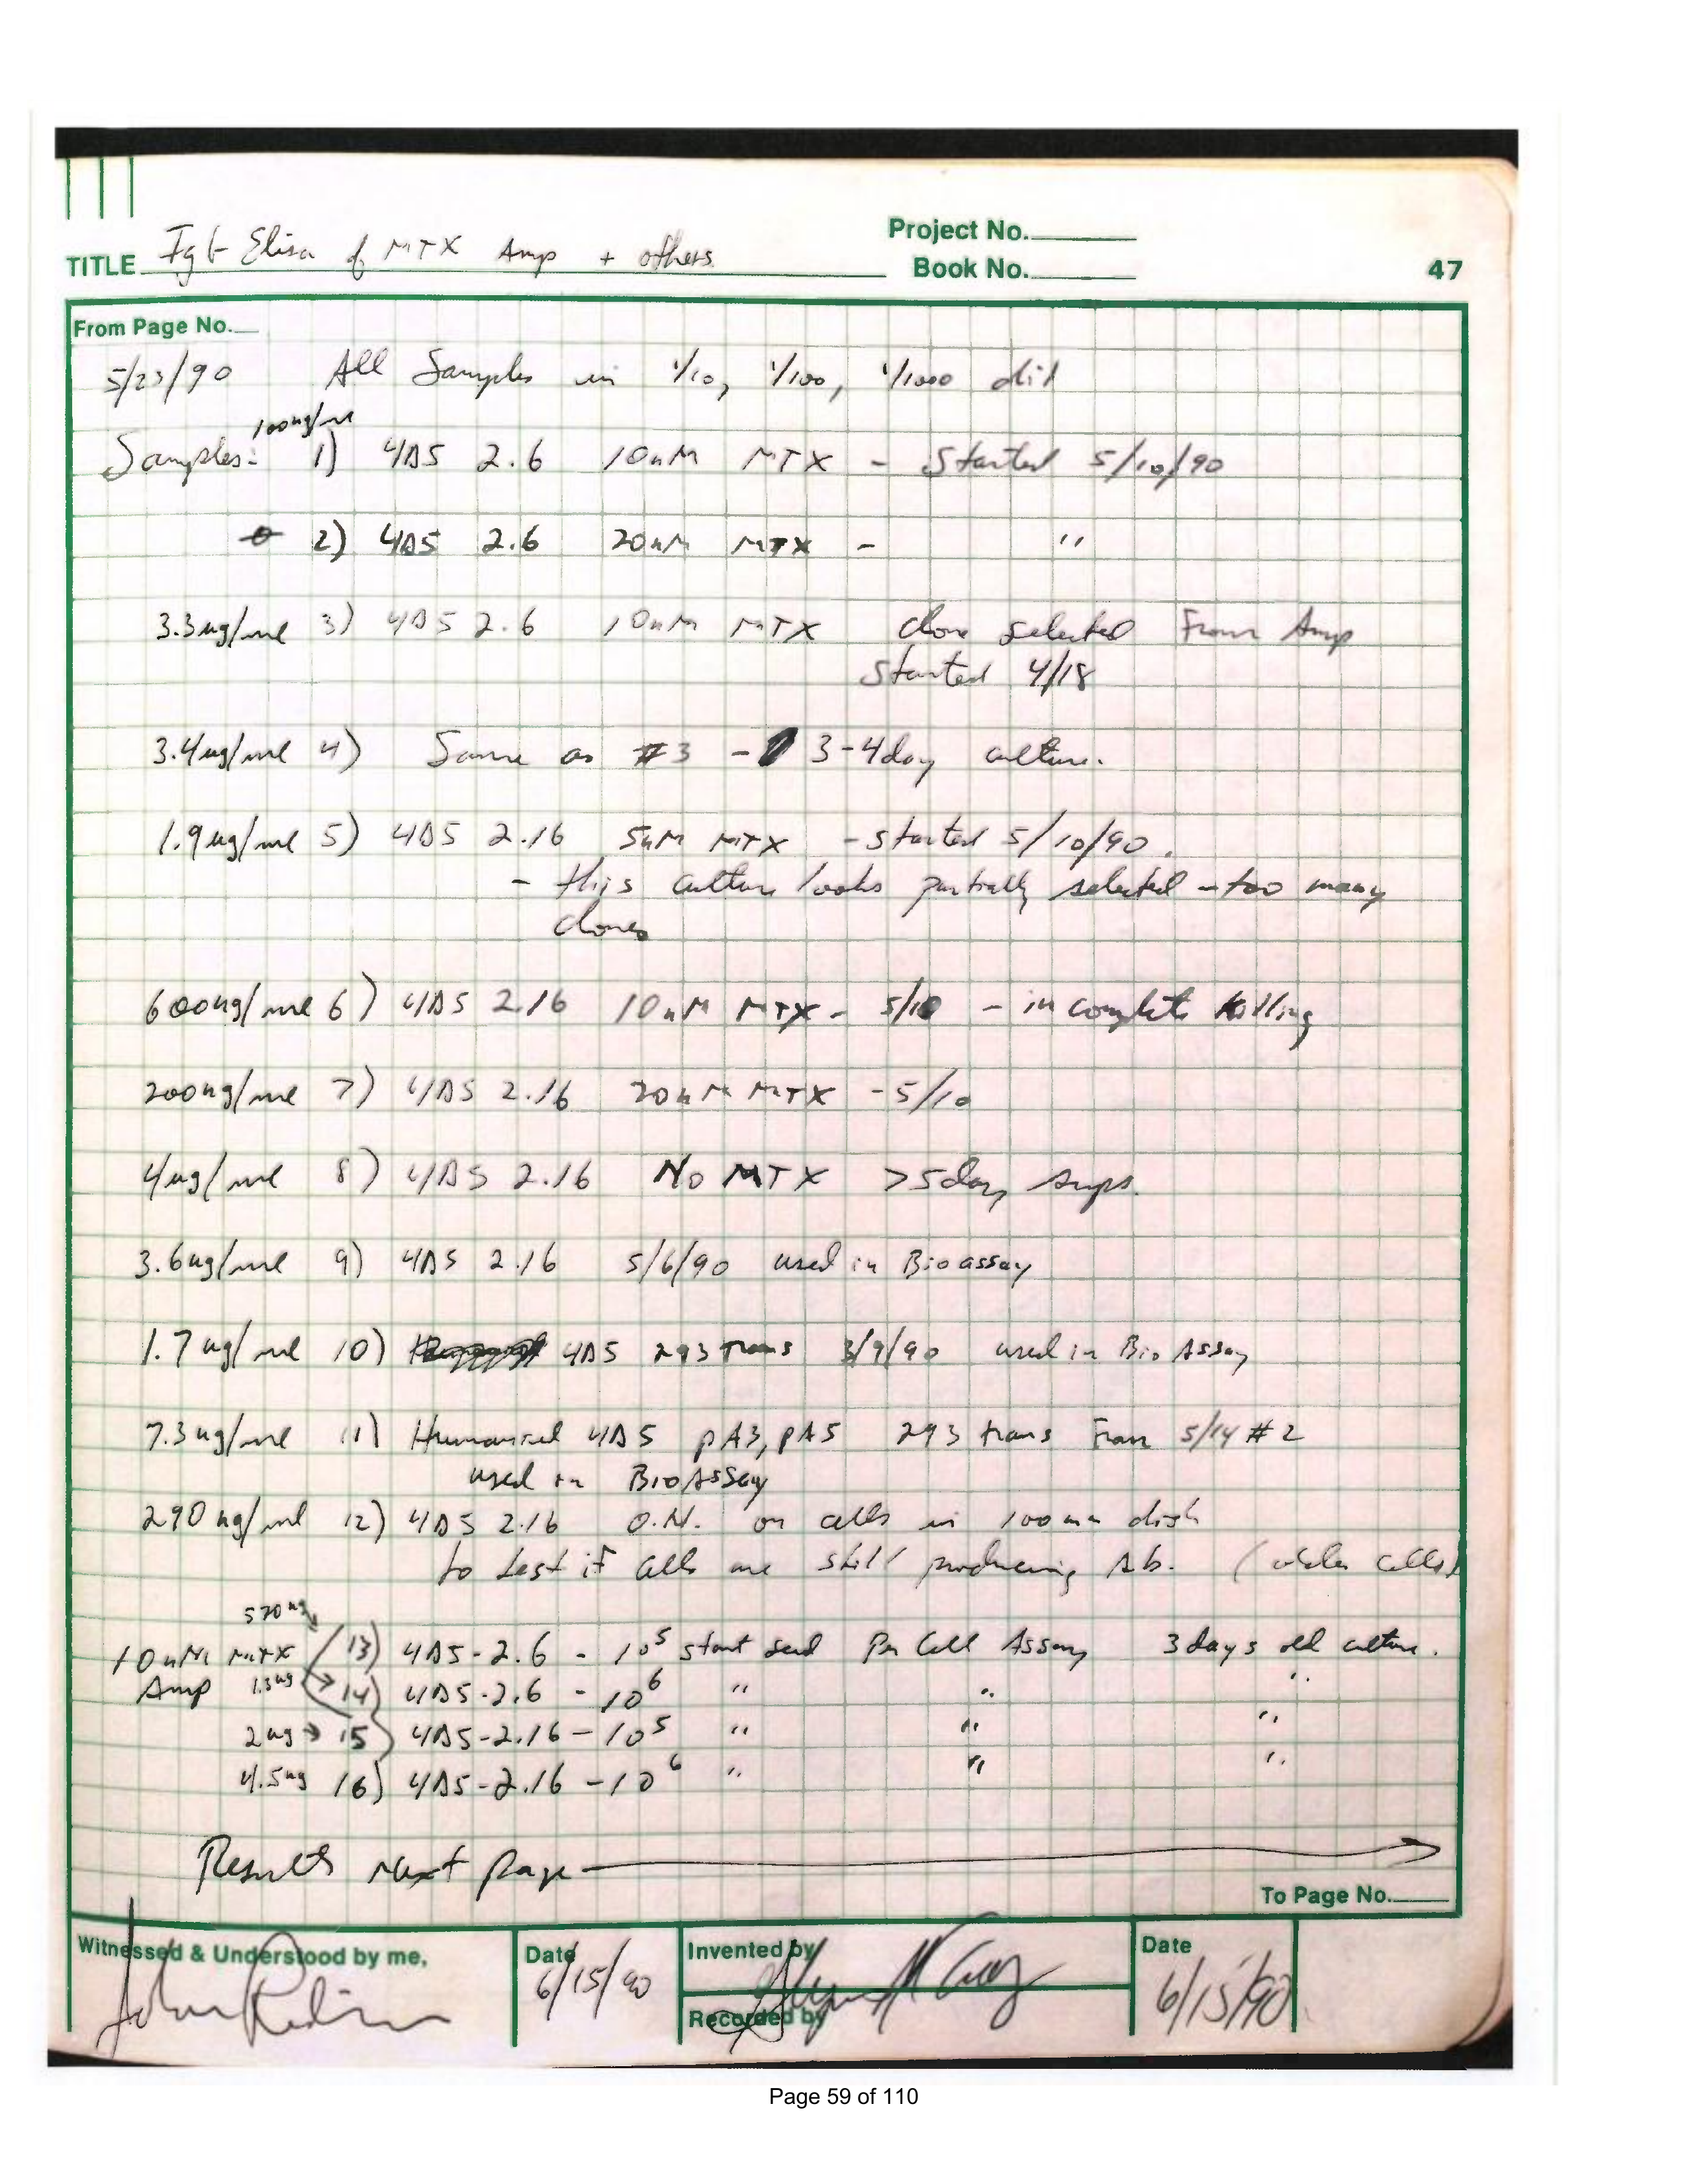 Project No.
TITLE IgG Elisa of MTX Amp + others
Book No.
47
From Page No.
5/23/90 All Samples in 1/10, 1/100, 1/1000 dil
100ng/ml
Samples: 1) 4D5 2.6 10nM MTX - Started 5/10/90
0 2) 4D5 2.6 20nM MTX - "
3.3ug/ml 3) 4D5 2.6 10nM MTX clone selected From Amp
Started 4/18
3.4ug/ml 4) Same as #3 - 3-4day culture.
1.9ug/ml 5) 4D5 2.16 5nM MTX - started 5/10/90.
- this culture looks partially selected - too many
clones
600ng/ml 6) 4D5 2.16 10nM MTX - 5/10 - incomplete killing
200ng/ml 7) 4D5 2.16 20nM MTX - 5/10
4ug/ml 8) 4D5 2.16 No MTX >5day sups.
3.6ug/ml 9) 4D5 2.16 5/6/90 used in Bioassay
1.7ug/ml 10) 4D5 293 trans 3/9/90 used in BioAssay
7.3ug/ml 11) Humanized 4D5 pA3, pA5 293 trans From 5/14 #2
used in BioAssay
290ng/ml 12) 4D5 2.16 O.N. on cells in 100mm dish
to test if cells are still producing Ab. (older cells)
570ng
10nM MTX 13) 4D5-2.6 - 10^5 start seed Per Cell Assay 3days old culture.
Amp 1.3ug → 14) 4D5-2.6 - 10^6 " " "
2ug → 15) 4D5-2.16 - 10^5 " " "
4.5ug 16) 4D5-2.16 - 10^6 " " "
Results Next page →
To Page No.
Witnessed & Understood by me,
Date
Invented by
Date
John
6/15/90
6/15/90
Recorded by
Page 59 of 110